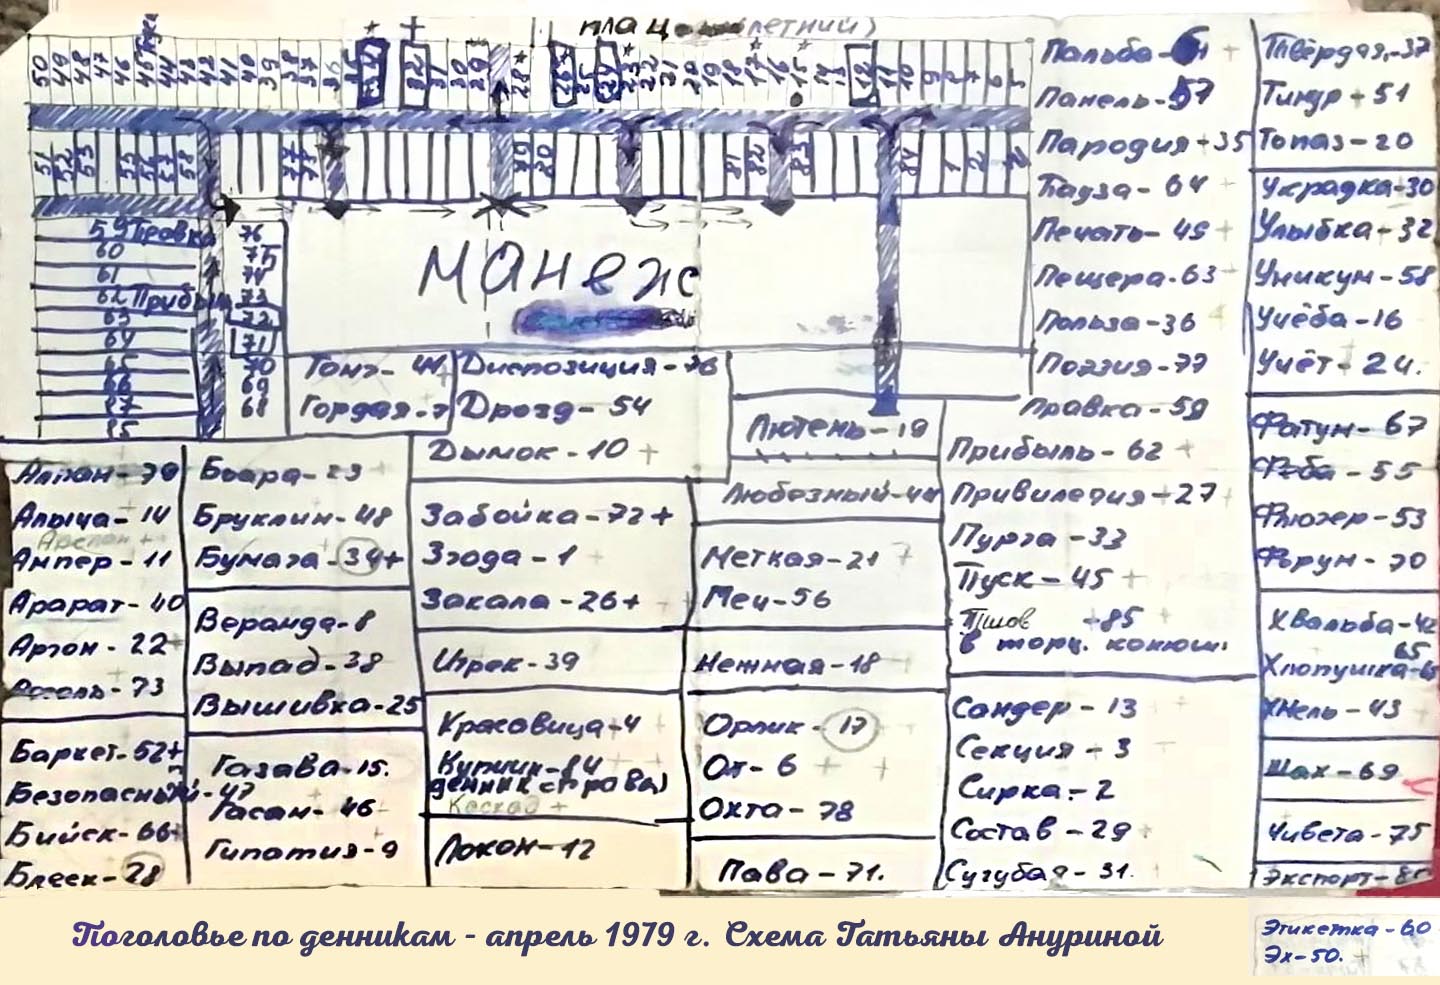 плац (летний)
50 49 48 47 46 45 44 43 42 41 40 39 38 37 36 35 34 32 31 30 29 28 26 24 23 22 21 20 19 18 17 16 15 14 13 12 11 10 9
51 52 53 55 56 57 58 79 80 81 82 83 84 1 2
59 Правка 76
60 75
61 74
62 Прибыль 73
63 72
64 71
65 70
66 69
67 68
85
манеж
Тонз - 44
Гордая - 7
Диспозиция - 76
Дрозд - 54
Дымок - 10 +
Алтан - 79
Алыча - 14
Арслан +
Ампер - 11
Арарат - 40
Аргон - 22 +
73
Баркет - 52 +
Безопасный - 47
Бийск - 66 +
Блеск - 28
Боярa - 23
Бруклин - 48
Бумага - 34 +
Веранда - 8
Выпад - 38
Вышивка - 25
Газава - 15.
Гасан - 46
Гипатия - 9
Забойка - 72 +
Згода - 1
Закала - 26 +
Игрек - 39
Красавица - 4
Купчик - 84
денник старова)
Каскад +
Локон - 12
Лютень - 19
Любезный - 44
Меткая - 21
Меч - 56
Нежная - 18
Орлик - 17
От - 6 + +
Охта - 78
Пава - 71.
Пальба - 61 +
Панель - 57
Пародия + 35
Пауза - 64 +
Печать - 49 +
Пещера - 63
Польза - 36
Поэзия - 77
Правка - 59
Прибыль - 62 +
Привилегия - 27 +
Пурга - 33
Пуск - 45 +
Пшов - 85 +
в торц. конюш.
Сандер - 13
Секция - 3
Сирка - 2
Состав - 29
Сугубая - 31.
Твёрдая - 37
Тимур + 51
Топаз - 20
Украдка - 30
Улыбка - 32
Уникум - 58
Учёба - 16
Учёт - 24.
Фатум - 67
Феба - 55
Флюгер - 53
Форум - 70
Хвальба - 42
65
Хлопушка - 65
Хмель - 43
Шах - 69
Чивета - 75
Экспорт - 85
Этикетка - 60
Эх - 50.
Поголовье по денникам - апрель 1979 г. Схема Татьяны Ануриной